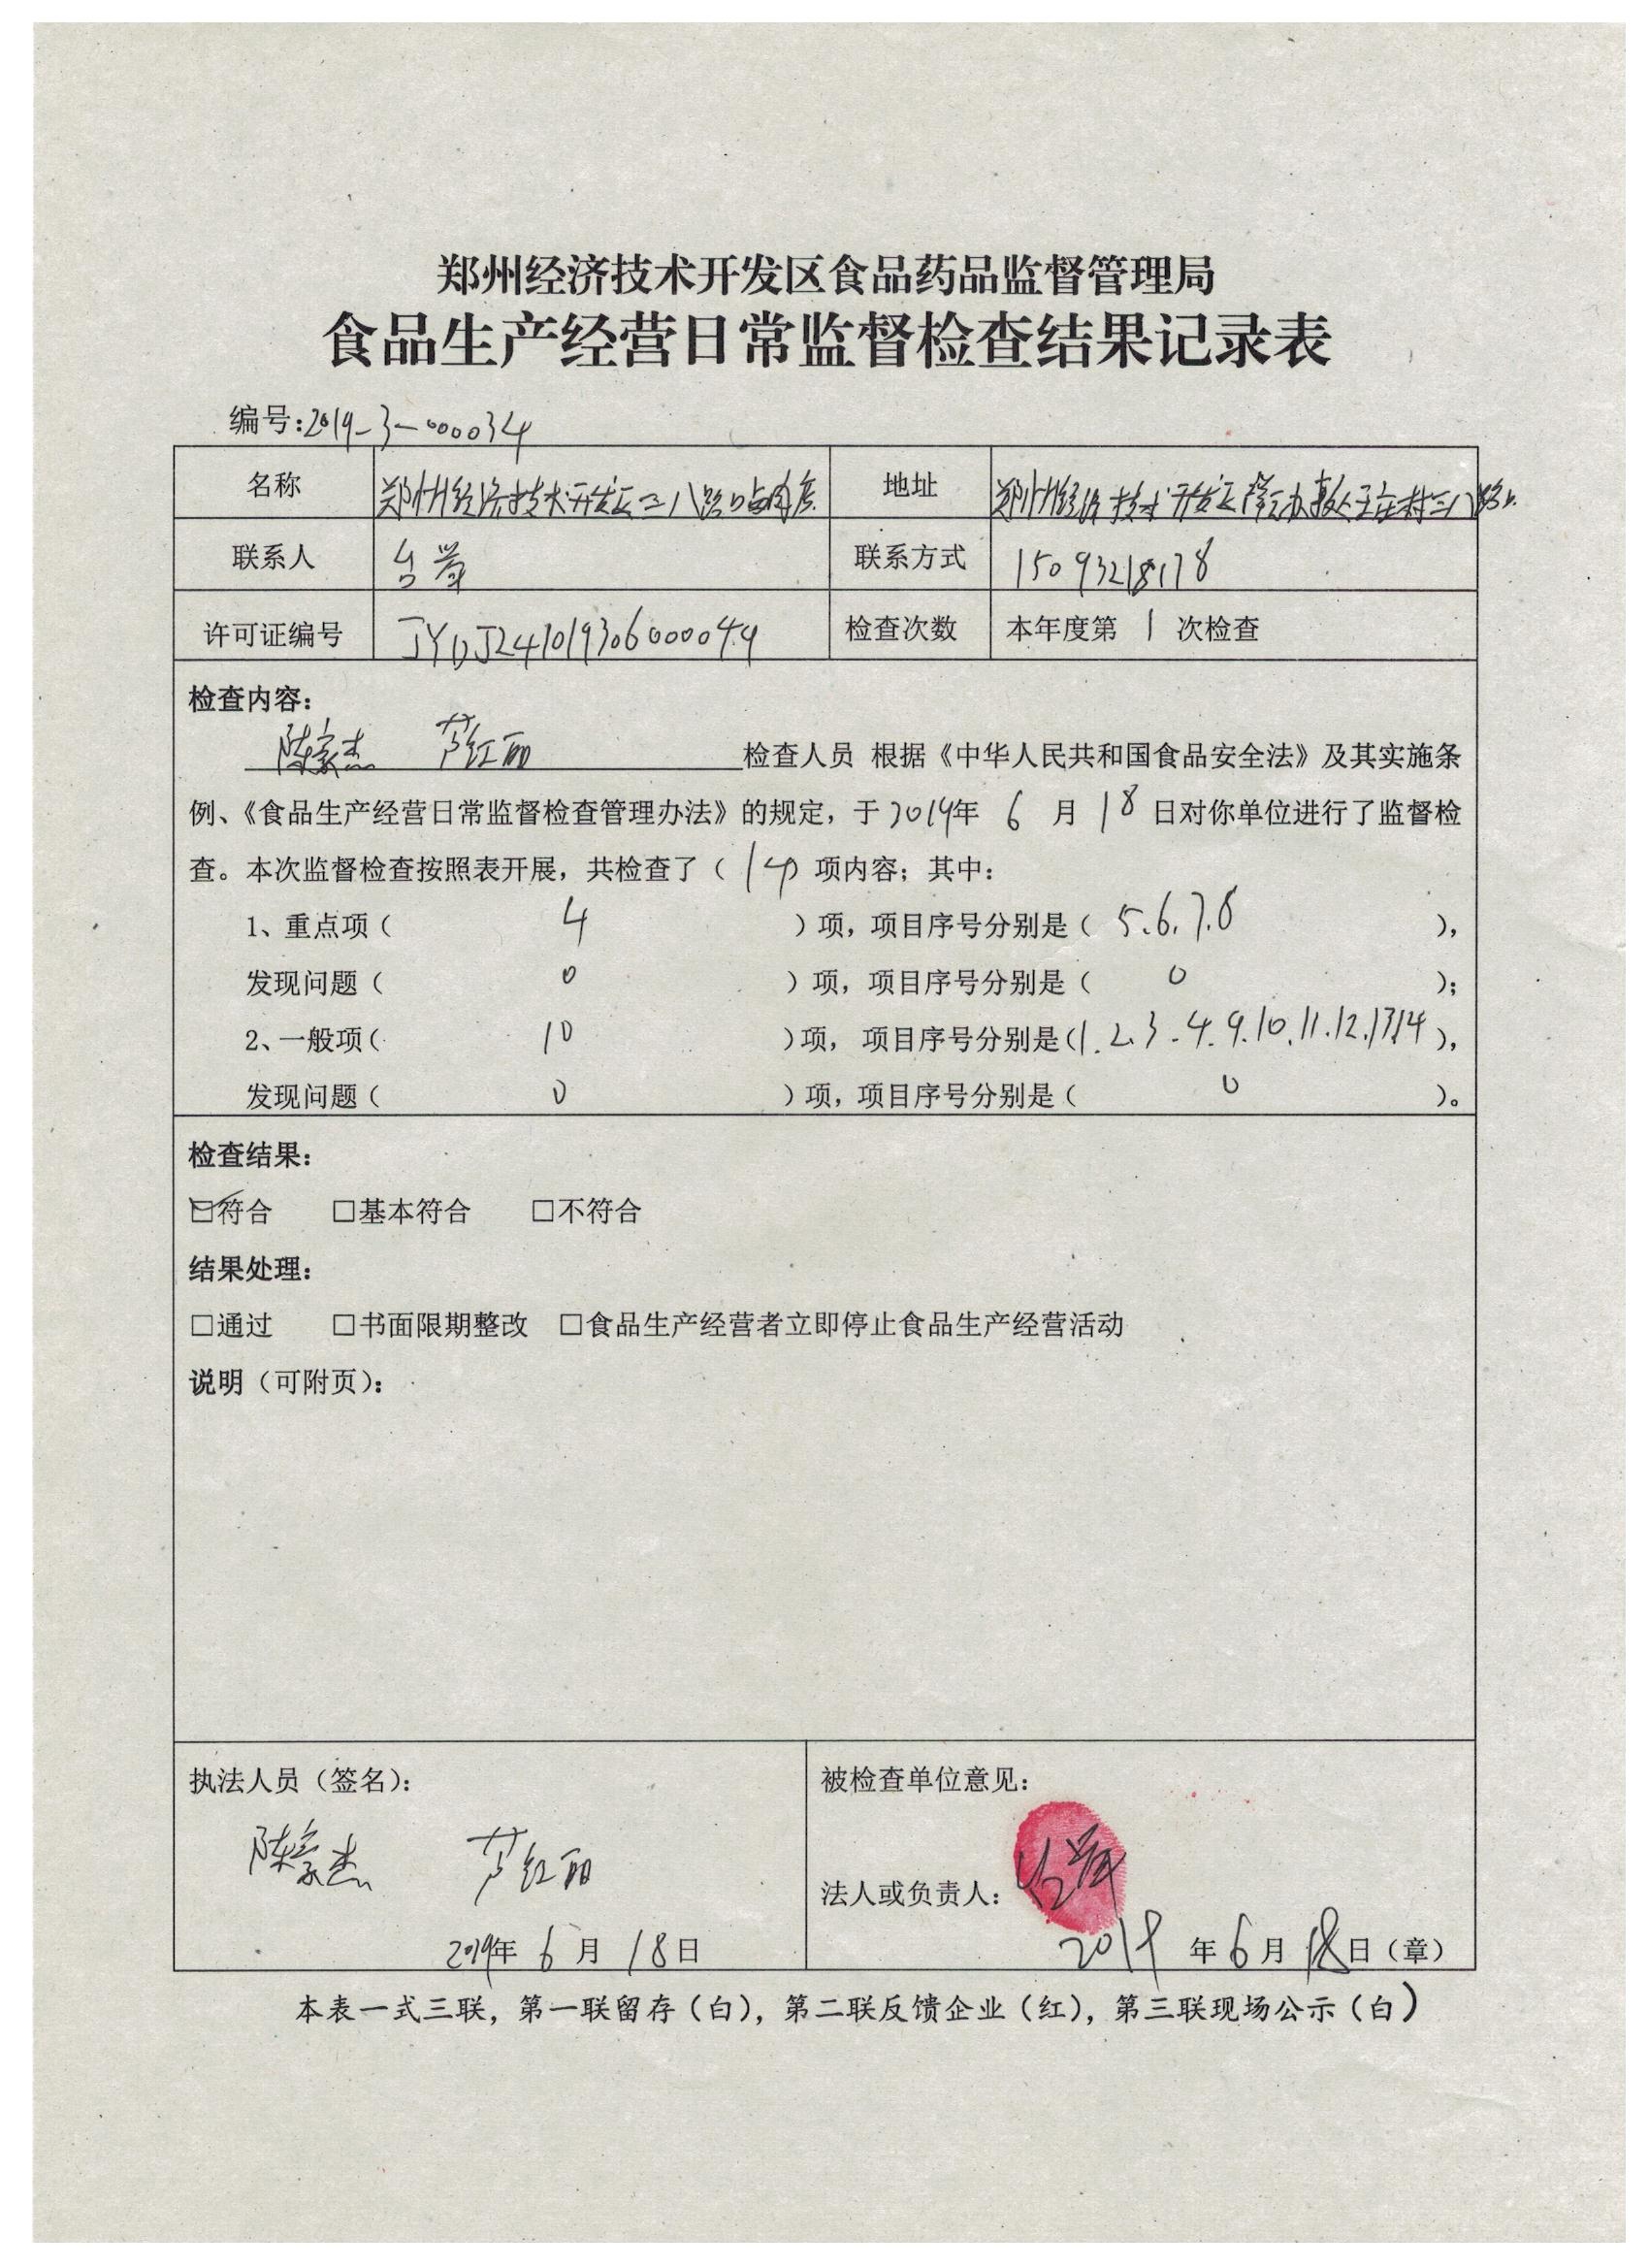 郑州经济技术开发区食品药品监督管理局
食品生产经营日常监督检查结果记录表
编号:2019-3-000034
名称 郑州经济技术开发区三八路口卤肉店 地址 郑州经济技术开发区 办事处王庄村三八路
联系人 联系方式 15093218178
许可证编号 JY 2410193060000 检查次数 本年度第1次检查
检查内容:
陈家杰 芦红丽 检查人员 根据《中华人民共和国食品安全法》及其实施条
例、《食品生产经营日常监督检查管理办法》的规定,于2019年6月18日对你单位进行了监督检
查。本次监督检查按照表开展,共检查了(14)项内容;其中:
1、重点项(4)项,项目序号分别是(5.6.7.8),
发现问题(0)项,项目序号分别是(0);
2、一般项(10)项, 项目序号分别是(1.2.3.4.9.10.11.12.13.14),
发现问题(0)项,项目序号分别是(0)。
检查结果:
☑符合 □基本符合 □不符合
结果处理:
□通过 □书面限期整改 □食品生产经营者立即停止食品生产经营活动
说明(可附页):
执法人员(签名): 被检查单位意见:
陈家杰 芦红丽 法人或负责人:
2019年6月18日 2019年6月18日(章)
本表一式三联,第一联留存(白),第二联反馈企业(红),第三联现场公示(白)